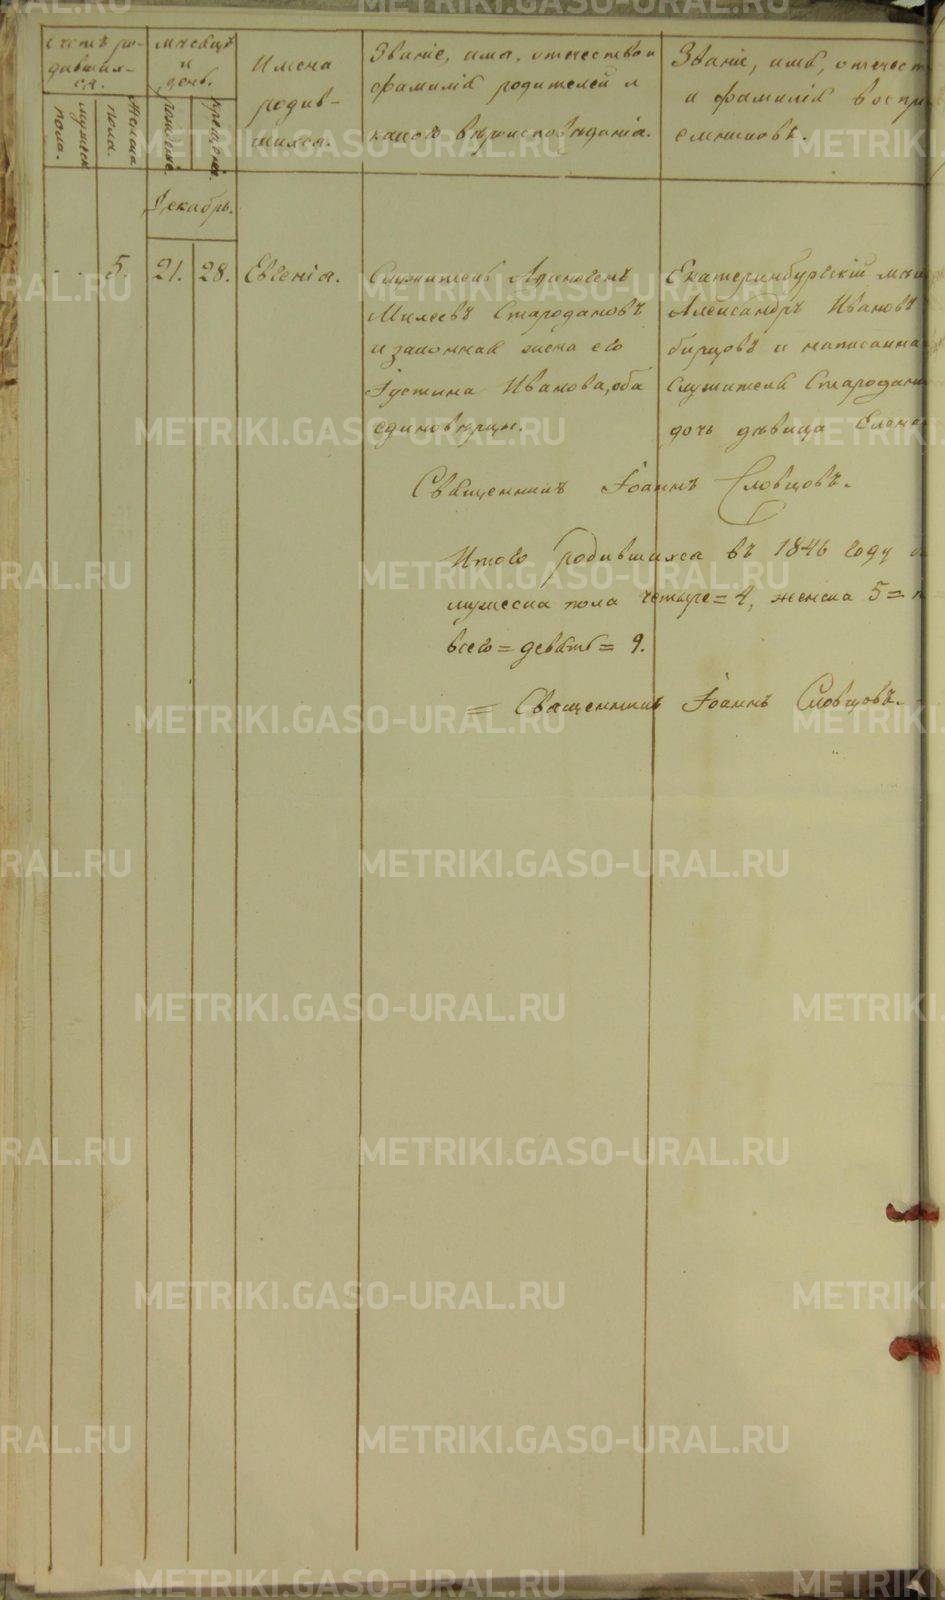 Счетъ ро-
дивших-
ся.
мужеска
пола.
женска
пола.
Мѣсяцъ
и
день.
рожденія.
крещенія.
Имена
родив-
шихся.
Званіе, имя, отечество и
фамилія родителей и
какого вѣроисповѣданія.
Званіе, имя, отечест
и фамилія воспрі
емниковъ.
Декабрь.
5. 21. 28. Евгенія.
Служитель
Милеевъ Стародановъ
и законная жена его
Іустина Иванова, оба
единовѣрцы.
Екатеринбургскій
Александръ Ивановъ
и написанна
служителя Стародано
дочь дѣвица Елена
Священникъ Іоаннъ Словцовъ.
Итого родившихся въ 1846 году
мужеска пола четыре = 4, женска 5 =
всего = девять = 9.
= Священникъ Іоаннъ Словцовъ.
METRIKI.GASO-URAL.RU